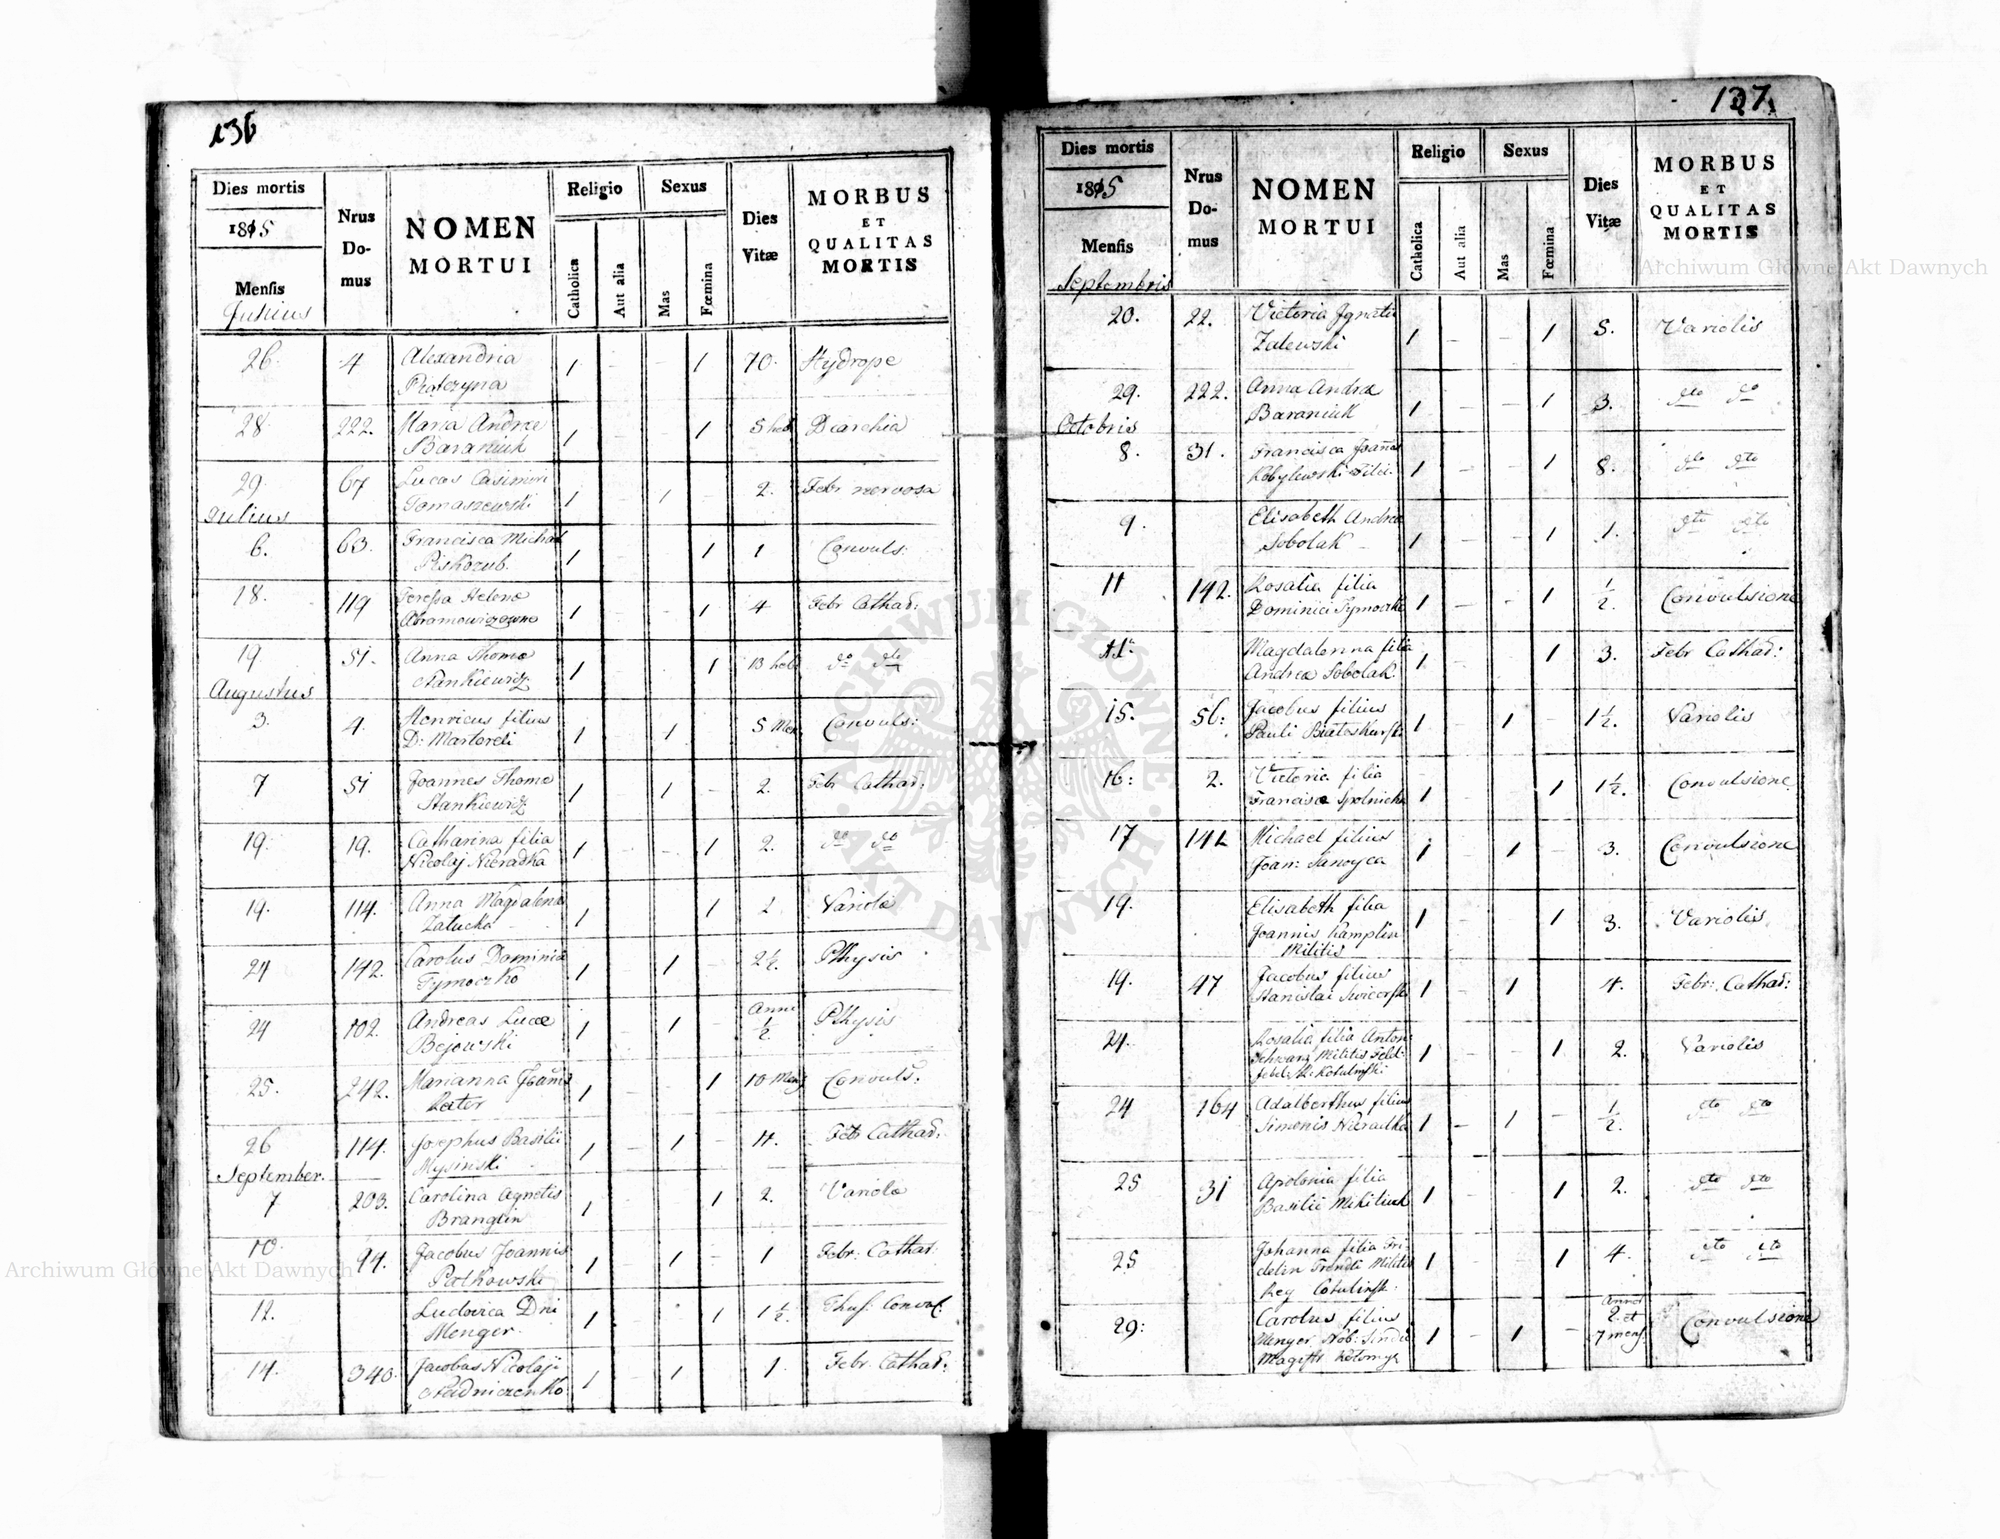 136
Dies mortis
1815
Mensis
Junius
Nrus Domus
NOMEN MORTUI
Religio
Catholica
Aut alia
Sexus
Mas
Fœmina
Dies Vitæ
MORBUS ET QUALITAS MORTIS
26. 4 Alexandria 1 - - 1 70. Hydrope
28 222. Maria Andreæ 1 - - 1 5 heb Diarrhia
Baraniuk
29 67 Lucas Casimiri 1 - 1 - 2. Febr nervosa
Tomaszewski
Julius
6. 63. Francisca Michael 1 - - 1 1 Convuls:
Piskozub.
18. 119 Teressa Helena 1 - - 1 4 Febr Cathar:
Abramowiczowna
19 51. Anna Thoma 1 - - 1 13 heb do dto
Stankiewicz
Augustus
3. 4. Henricus filius 1 - 1 5 Men Convuls:
D: Martoreli
7 51 Joannes Thoma 1 - 1 - 2. Febr Cathar:
Stankiewicz
19. 19. Catharina filia 1 - - 1 2. do do
Nicolaj Nieradka
19. 114. Anna Magdalena 1 - - 1 2 Variola
Zatucka
24 142. Carolus Dominici 1 - 1 - 2½. Pthysis
Tymoczko
24 102. Andreas Lucæ 1 - 1 - Anni ½ Pthysis
Bejowski
25. 242. Marianna Joanis 1 - - 1 10 Mens Convuls.
26 114. Josephus Basilii 1 - 1 - 4. Feb Cathar:
Mysinski
September.
7 203. Carolina Agnetis 1 - - 1 2. Variola
Branglin
10. 94. Jacobus Joannis 1 - 1 - 1 Febr: Cathar.
Patkowski
12. Ludovica Dni 1 - - 1 1½.
Menger.
14. 340. Jacobus Nicolaji 1 - 1 - 1. Febr. Cathar:
137
Dies mortis
1815
Mensis
Septembris
Nrus Domus
NOMEN MORTUI
Religio
Catholica
Aut alia
Sexus
Mas
Fœmina
Dies Vitæ
MORBUS ET QUALITAS MORTIS
20. 22. Victoria Jgnatii 1 - - 1 5. Variolis
Zalewski
29. 222. Anna Andreæ 1 - - 1 3. dto do
Baraniuk
Octobris
8. 31. Francisca Joannis 1 - - 1 8. dto dto
Kobylewski filia
9. Elisabeth Andreæ 1 - - 1 1. dto dto
Sobolak
11 142. Rosalia filia 1 - - 1 ½. Convulsione
Dominici Tymoczko
11. Magdalenna filia 1 - - 1 3. Febr Cathar:
Andreæ Sobolak.
15. 56: Jacobus filius 1 - 1 - 1½. Variolis
Pauli
16: 2. Victoria filia 1 - - 1 1½. Convulsione
Francisca Spolnicka
17 142 Michael filius 1 - 1 - 3. Convulsione
Joan: Sanoyca
19. Elisabeth filia 1 - - 1 3. Variolis.
Joannis Kamplin
Militis
19. 47 Jacobus filius 1 - 1 - 4. Febr: Cathar:
Stanislai
24. Rosalia filia Anton 1 - - 1 2. Variolis
Schwarz Militis Feld:
24 164 Adalberthus filius 1 - 1 - ½. dto dto
Simonis Nieradka
25 31 Apolonia filia 1 - - 1 2. dto dto
Basilii Mikitiuk
25 Johanna filia Fri 1 - - 1 4. dto dto
delin Militis
Reg
29: Carolus filius 1 - 1 - Annor 2. et 7 mens. Convulsione
Menger Nob:
Archiwum Główne Akt Dawnych
Archiwum Główne Akt Dawnych
ARCHIWUM GŁÓWNE AKT DAWNYCH